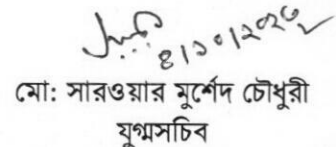 ৪/১০/২০২৩
মো: সারওয়ার মুর্শেদ চৌধুরী
যুগ্মসচিব